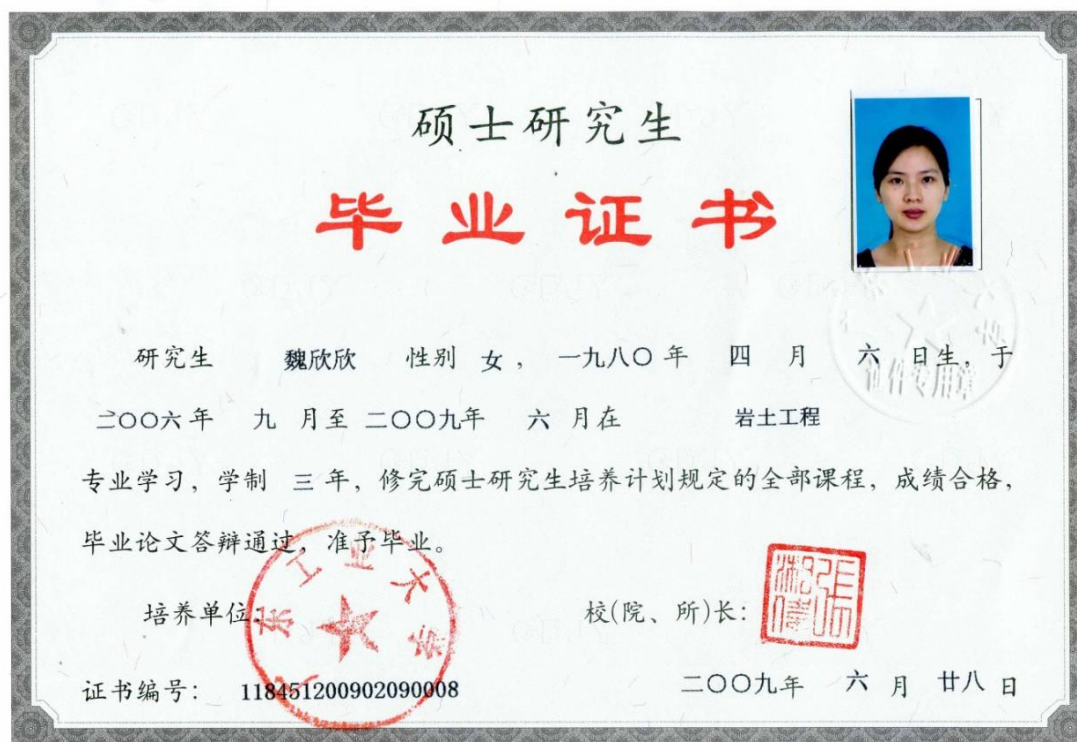 硕士研究生
毕业证书
研究生 魏欣欣 性别 女， 一九八〇 年 四 月 六 日生，于
二〇〇六年 九 月至 二〇〇九年 六 月在 岩土工程
专业学习，学制 三 年，修完硕士研究生培养计划规定的全部课程，成绩合格，
毕业论文答辩通过，准予毕业。
广东工业大学
培养单位：
校(院、所)长：
证书编号： 118451200902090008
二〇〇九年 六 月 廿八 日
证件专用章